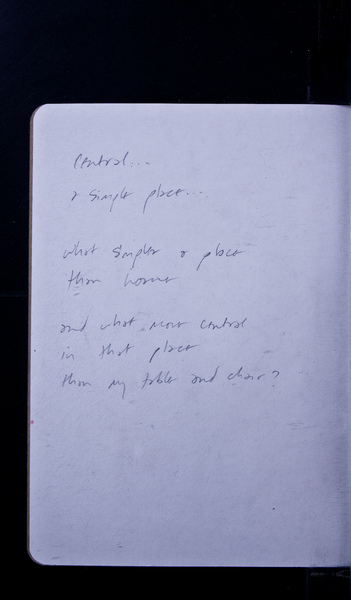 central...
a simple place...
what simpler a place
than home
and what more central
in that place
than my table and chair?